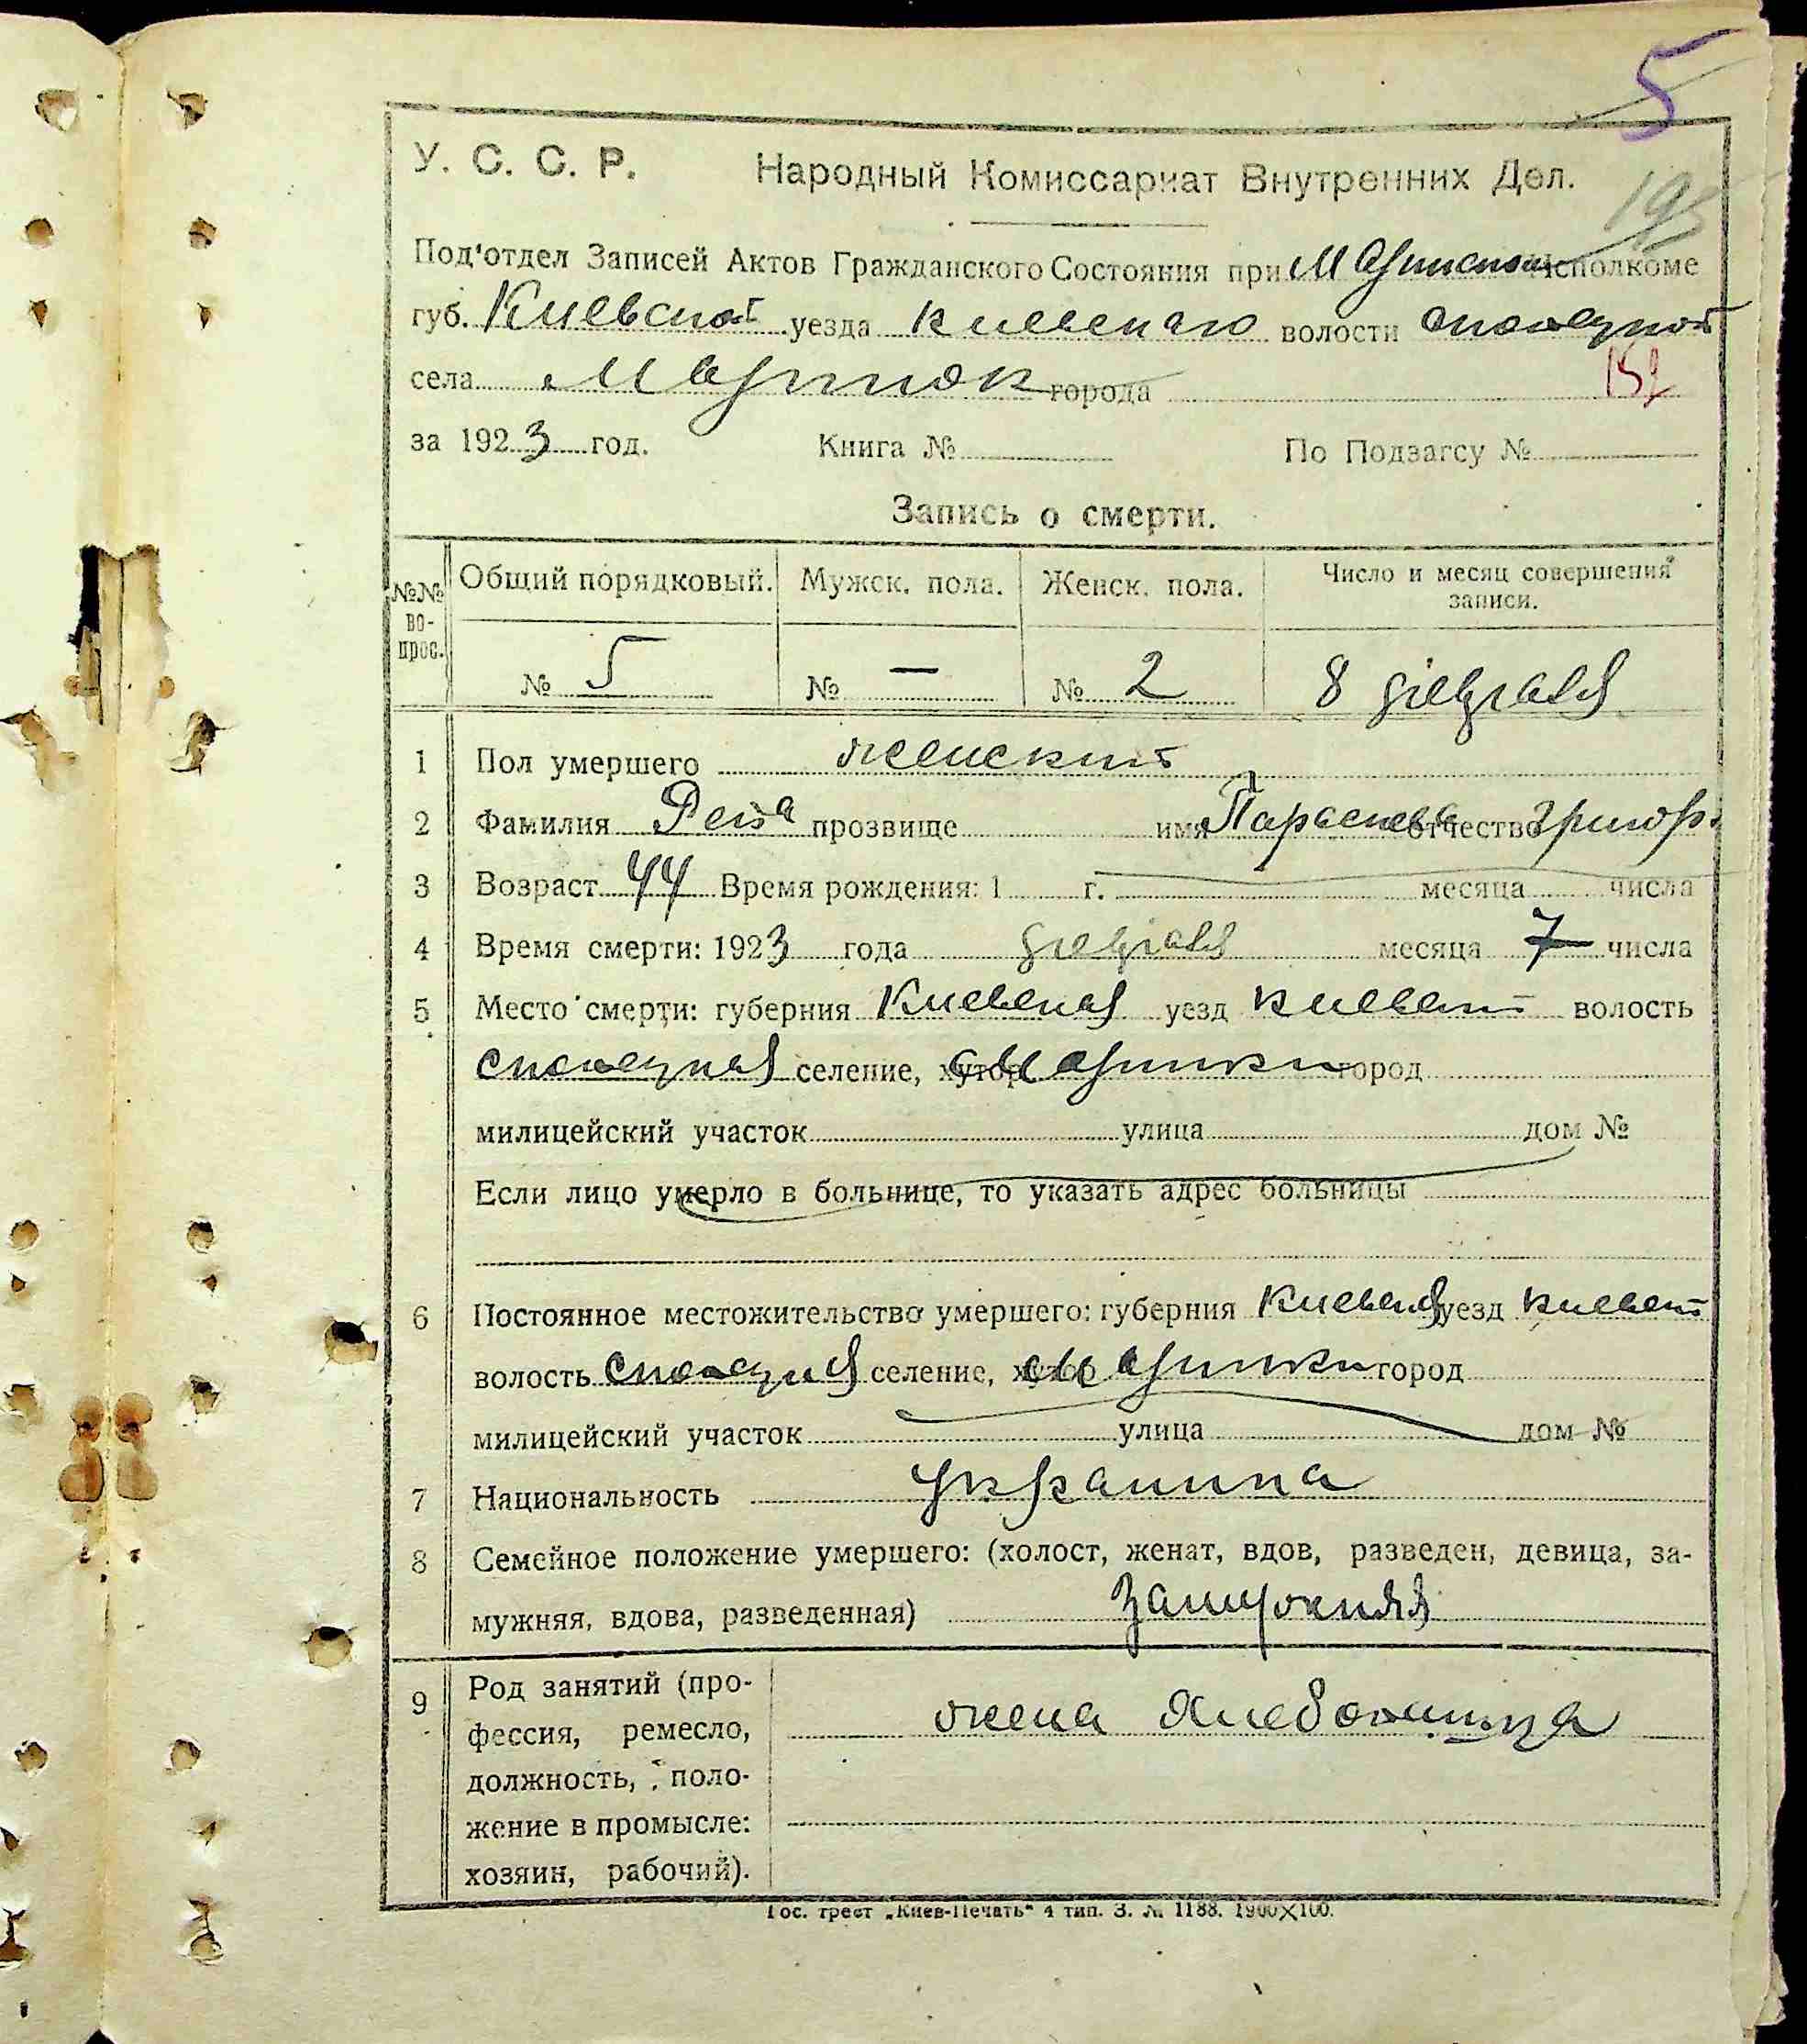 5
У. С. С. Р. Народный Комиссариат Внутренних Дел.
195
Под'отдел Записей Актов Гражданского Состояния при исполкоме
губ. Киевской уезда киевскаго волости
села города
152
за 1923 год. Книга № По Подзагсу №
Запись о смерти.
№№ во-прос. Общий порядковый. Мужск. пола. Женск. пола. Число и месяц совершения записи.
№ 5 № — № 2 8 февраля
1 Пол умершего женский
2 Фамилия прозвище имя отчество Григор.
3 Возраст 44 Время рождения: 1 г. месяца числа
4 Время смерти: 1923 года февраля месяца 7 числа
5 Место смерти: губерния Киевская уезд киевский волость
селение, хутор город
милицейский участок улица дом №
Если лицо умерло в больнице, то указать адрес больницы
6 Постоянное местожительство умершего: губерния Киевская уезд киевский
волость селение, хутор город
милицейский участок улица дом №
7 Национальность украинка
8 Семейное положение умершего: (холост, женат, вдов, разведен, девица, за-
мужняя, вдова, разведенная) замужняя
9 Род занятий (про-
фессия, ремесло, жена
должность, поло-
жение в промысле:
хозяин, рабочий).
Гос. трест „Киев-Печать" 4 тип. З. № 1188. 1900×100.